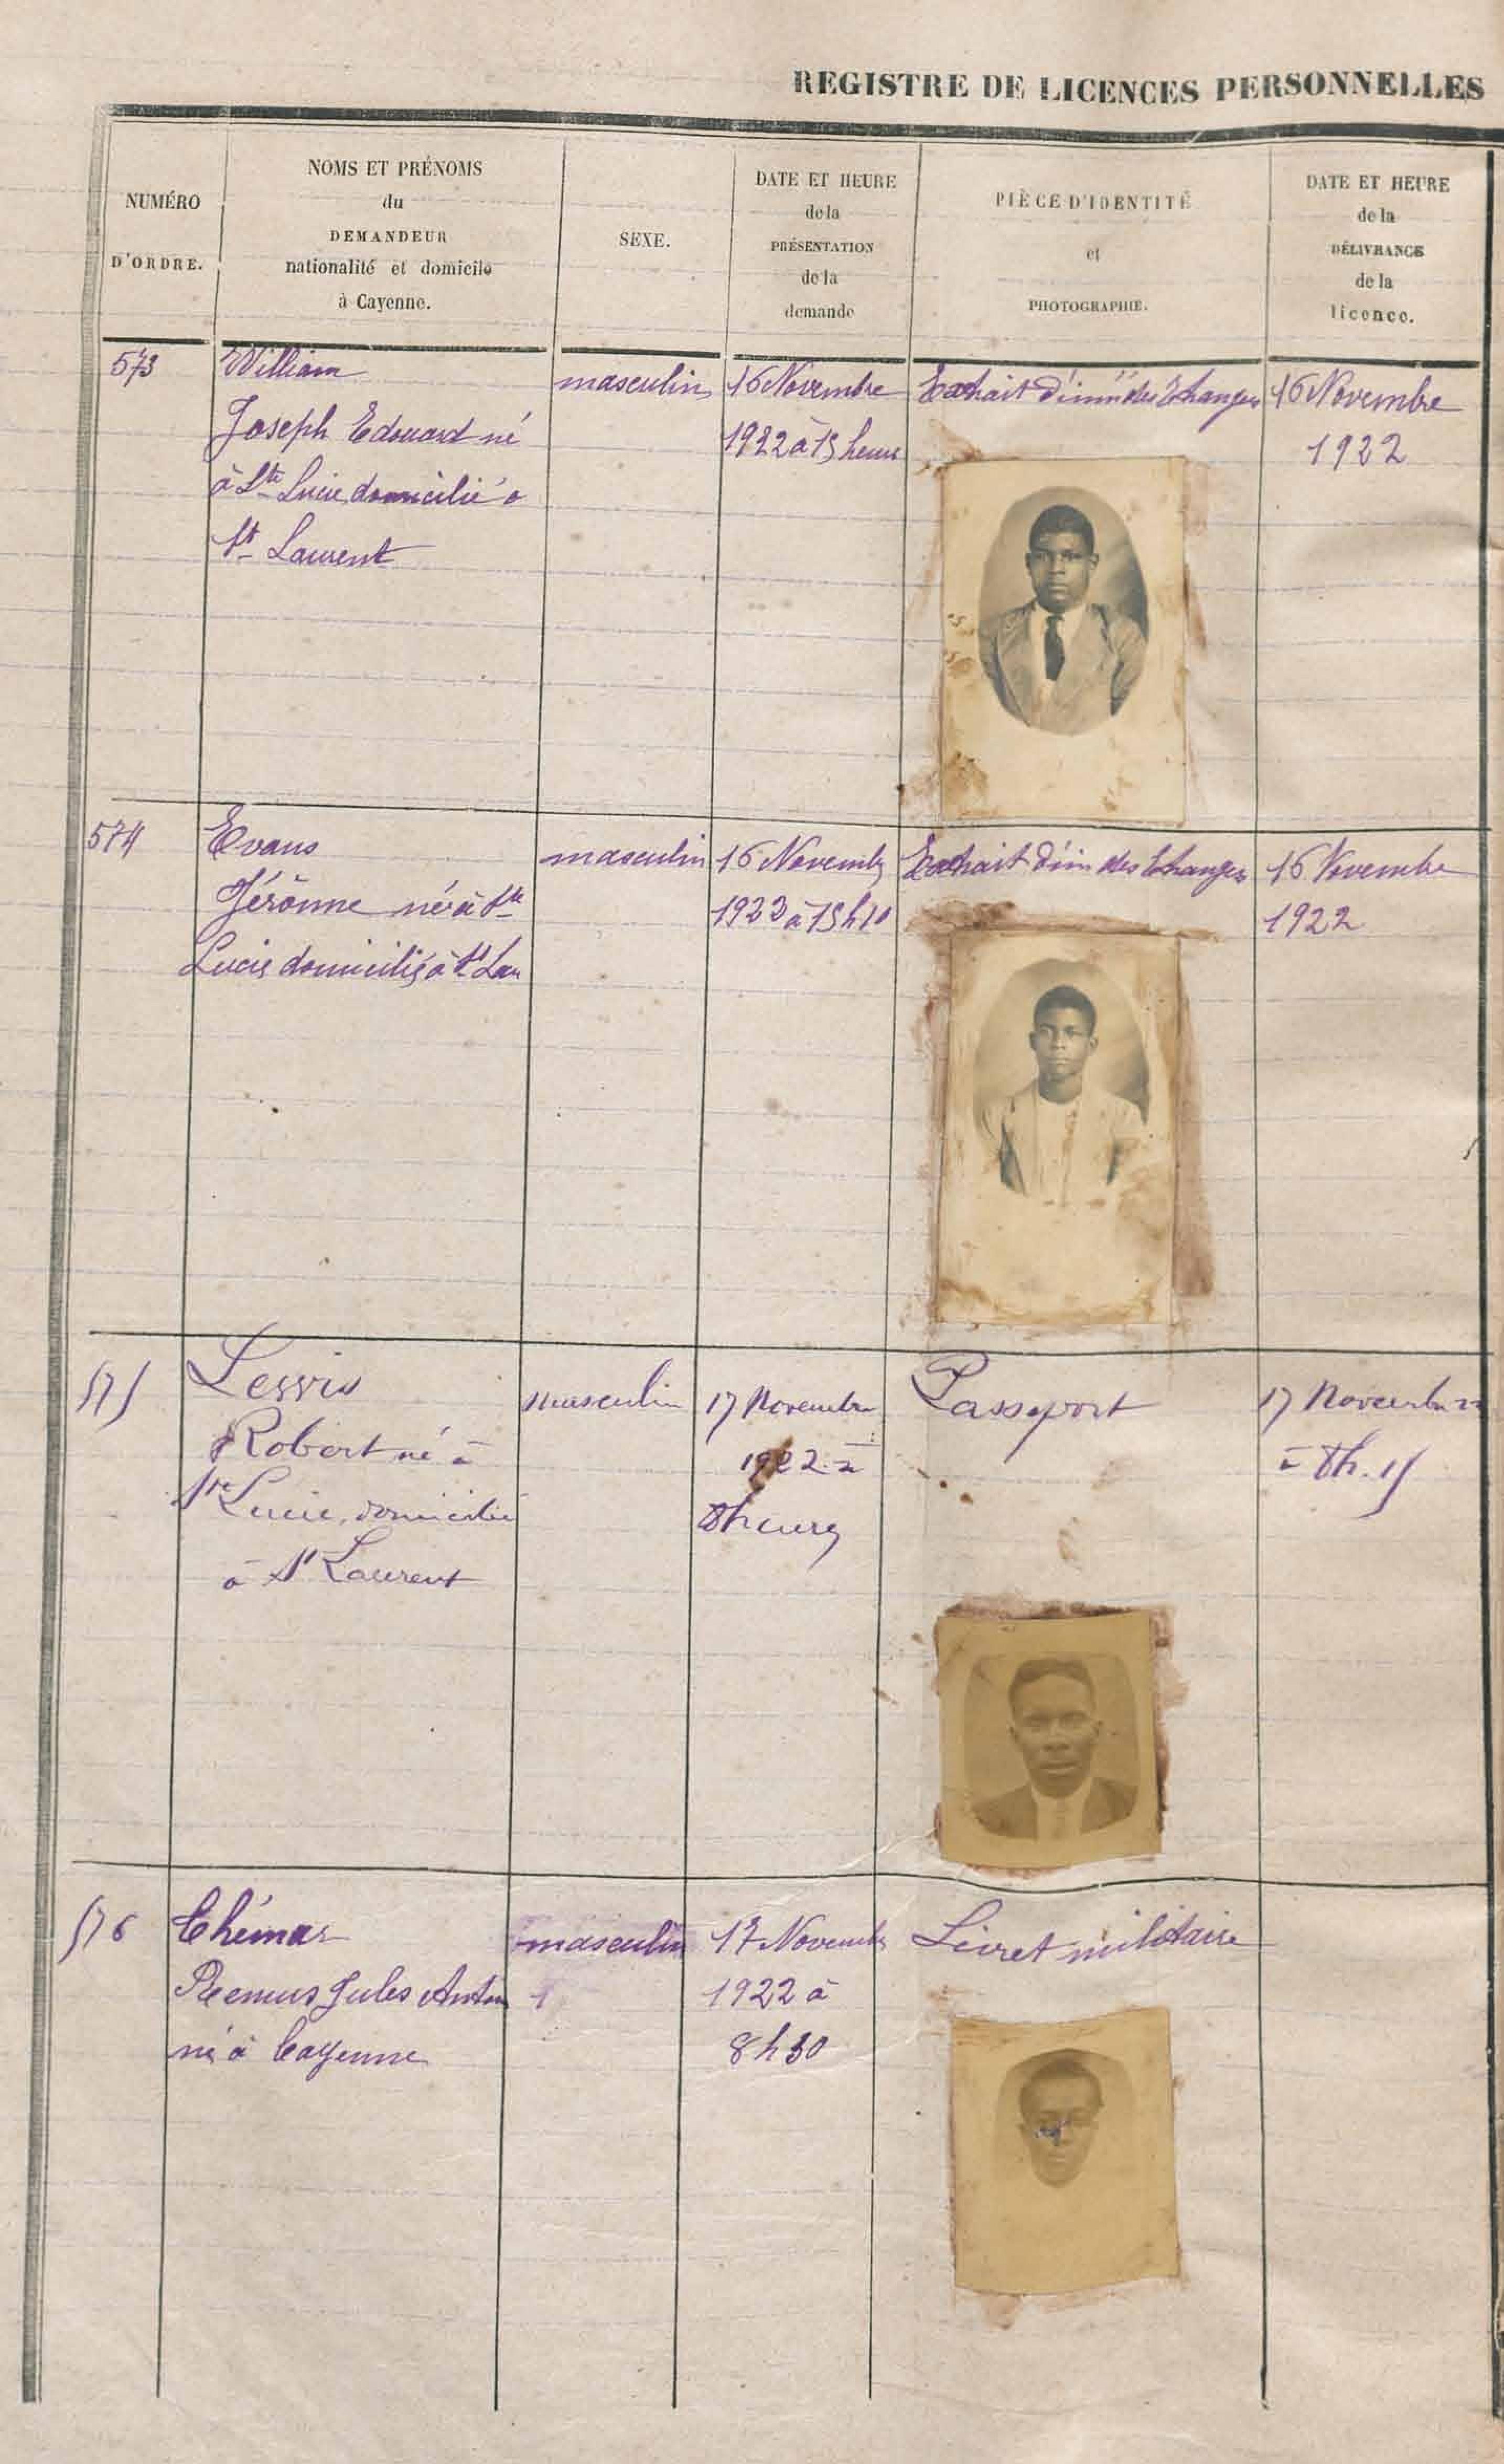 REGISTRE DE LICENCES PERSONNELLES
NUMÉRO
D'ORDRE.
NOMS ET PRÉNOMS
du
DEMANDEUR
nationalité et domicile
à Cayenne.
SEXE.
DATE ET HEURE
de la
PRÉSENTATION
de la
demande
PIÈCE D'IDENTITÉ
et
PHOTOGRAPHIE.
DATE ET HEURE
de la
DÉLIVRANCE
de la
licence.
573
William
Joseph Edouard né
à Ste Lucie domicilié à
St Laurent
masculin
16 Novembre
1922 à 15 heures
Extrait d'imm des Etrangers
16 Novembre
1922
574
Evans
Jérôme né à Ste
Lucie domicilié à St Lau
masculin
16 Novemb
1922 à 15h10
Extrait d'im des Etrangers
16 Novembre
1922
575
Lewis
Robert né à
Ste Lucie, domicilié
à St Laurent
masculin
17 Novembre
1922 à
8 heures
Passeport
17 Novembre 22
à 8h.15
576
Chémar
Remus Jules Anton
né à Cayenne
masculin
17 Novemb
1922 à
8h30
Livret militaire